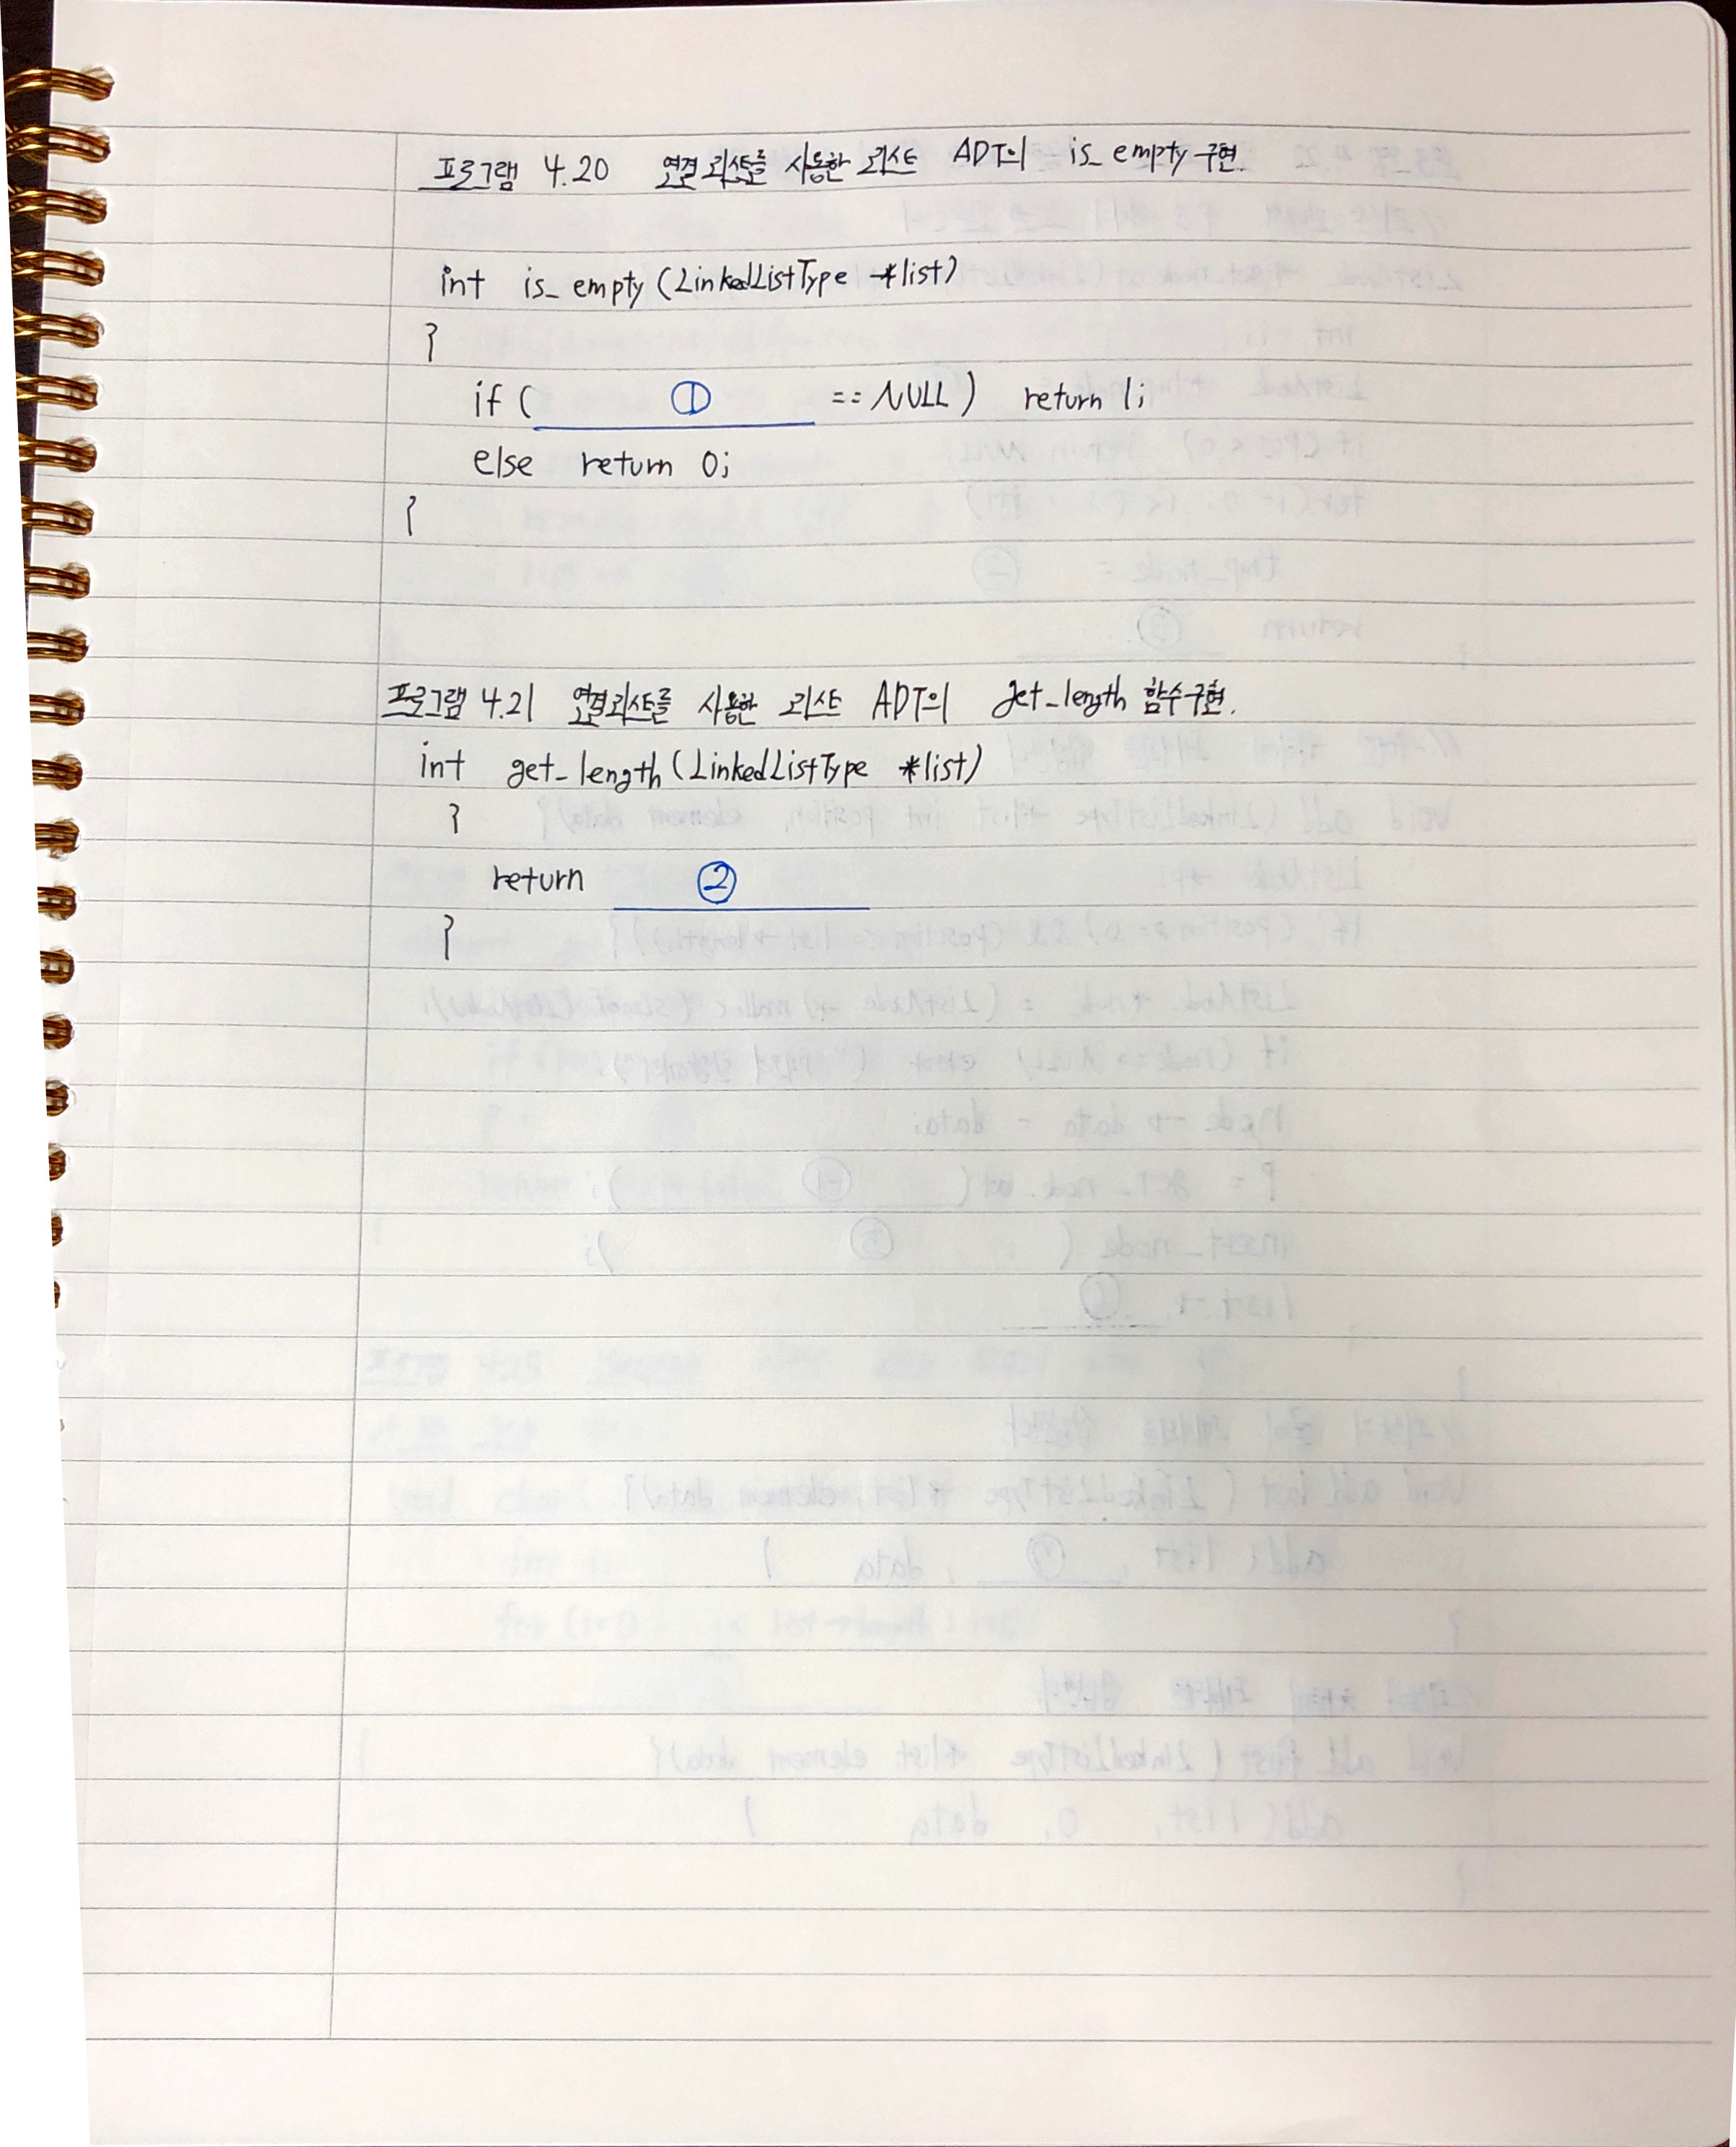 프로그램 4.20 연결리스트를 사용한 리스트 ADT의 is_empty 구현.
int is_empty(LinkedListType *list)
}
if( ① == NULL) return 1;
else return 0;
}
프로그램 4.21 연결리스트를 사용한 리스트 ADT의 get_length 함수구현.
int get_length(LinkedListType *list)
}
return ②
}